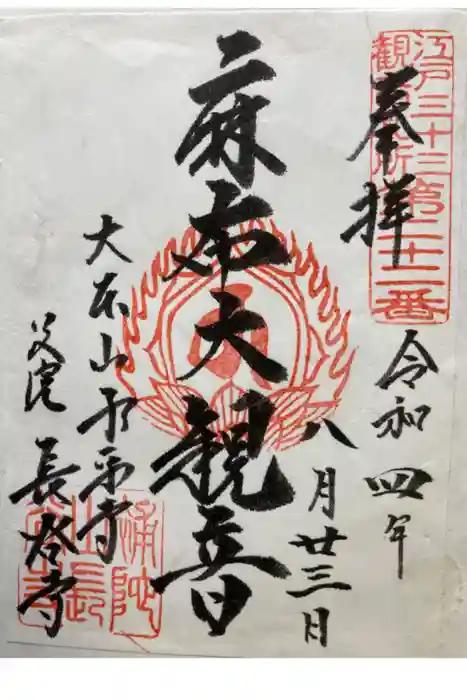 江戸三十三
観音札所第二十二番
奉拝
令和四年
八月廿三日
麻布大観音
大本山永平寺
別院 長谷寺
補陀
山長
谷寺